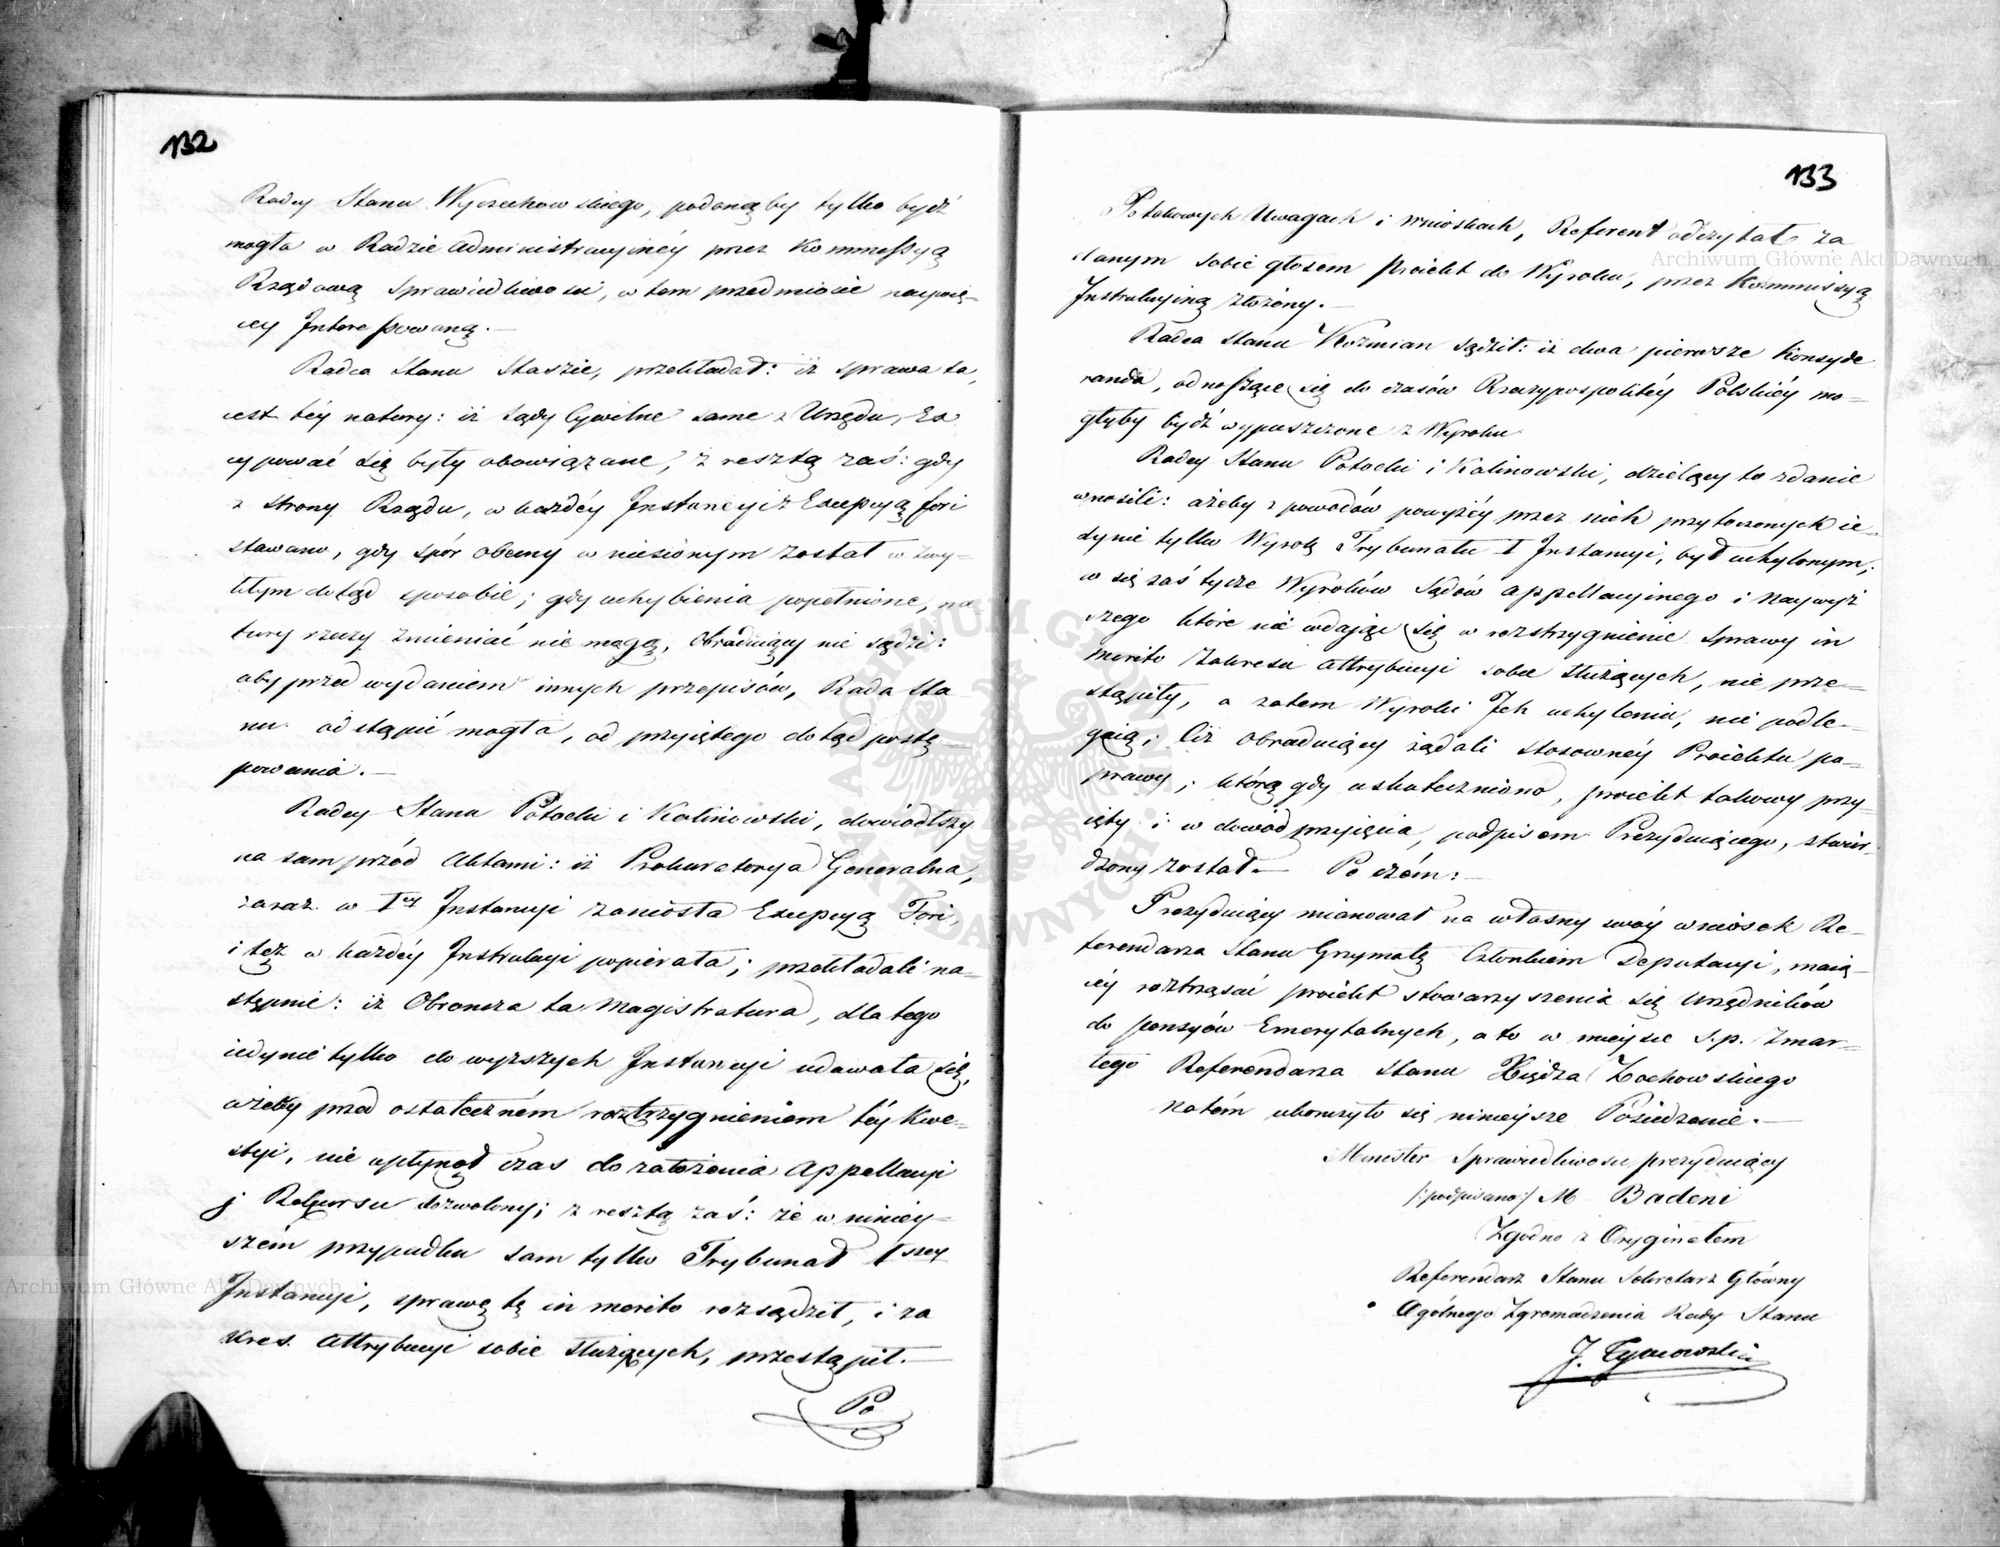 132
Radcy Stanu Wyczechowskiego, podaną by tylko bydź
mogła w Radzie administracyinéy przez Kommissyą
Rządową Sprawiedliwości, w tem przedmiocie naywię-
cey Interessowaną.—
Radca Stanu Staszic, przekładał: iż sprawa ta,
iest téy natury: iż Sądy Cywilne same z Urzędu, Ex
cypować się były obowiązane, z resztą zaś: gdy
z strony Rządu, w każdéy Instancyi z Excepcyą fori
stawano, gdy spór obecny wniesionym został w zwy-
kłym dotąd sposobie; gdy uchybienia popełnione, na-
tury rzeczy zmieniać nie mogą, Obraduiący nie sądzi:
aby przed wydaniem innych przepisów, Rada Sta
nu odstąpić mogła, od przyiętego dotąd postę-
powania.—
Radcy Stanu Potocki i Kalinowski, dowiódłszy
na sam przód Aktami: iż Prokuratorya Generalna,
zaraz w I<sup>éy</sup> Instancyi zaniosła Excepcyą Fori,
i tęż w każdéy Instrukcyi popierała; przekładali na-
stępnie: iż Obrończa ta Magistratura, dla tego
iedynie tylko do wyższych Instancyi udawała się,
ażeby przed ostateczném roztrzygnieniem téy kwe-
styi, nie upłynął czas do założenia Appellacyi
i Rekursu dozwolony; z resztą zaś: że w niniey-
szém przypadku sam tylko Trybunał I<sup>szey</sup>
Instancyi, sprawę tę in merito rozsądził, i za
kres Attrybucyi sobie służących, przestąpił.—
Po
133
Po takowych Uwagach i wnioskach, Referent odczytał za
danym sobie głosem Proiekt do Wyroku, przez Kommissyą
Instrukcyiną złożony.—
Radca Stanu Koźmian sądził: iż dwa pierwsze Konsyde
randa, odnoszące się do czasów Rzeczypospolitéy Polskiéy mo-
głyby bydź wypuszczone z Wyroku
Radcy Stanu Potocki i Kalinowski, dzielący to zdanie
wnosili: ażeby z powodów powyżéy przez nich przytoczonych ie-
dynie tylko Wyrok Trybunału I Instancyi, był uchylonym;
co się zaś tycze Wyroków Sądów Appellacyinego i Naywyż
szego które nie wdaiąc się w rozstrzygnienie Sprawy in
merito zakresu Attrybucyi sobie służących, nie prze-
stąpiły, a zatem Wyroki Ich uchyleniu, nie podle-
gaią; Ciż Obraduiący żądali stosownéy Proiektu po-
prawy; którą gdy uskuteczniono, proiekt takowy przy-
ięty i w dowód przyięcia, podpisem Prezyduiącego, stwier-
dzony został.— Po czém:—
Prezyduiący mianował na własny swóy wniosek Re-
ferendarza Stanu Grzymałę Członkiem Deputacyi, maią-
céy roztrząsać proiekt stowarzyszenia się Urzędników
do pensyów Emerytalnych, a to w mieysce S.p. Zmar-
łego Referendarza Stanu Xiędza Zochowskiego
Na tém ukończyło się ninieysze Posiedzenie.—
Minister Sprawiedliwości prezyduiący
/:podpisano:/ M Badeni
Zgodno z Oryginałem
Referendarz Stanu Sekretarz Główny
Ogólnego Zgromadzenia Rady Stanu
J. Tymowski
Archiwum Główne Akt Dawnych
Archiwum Główne Akt Dawnych
ARCHIWUM GŁÓWNE AKT DAWNYCH